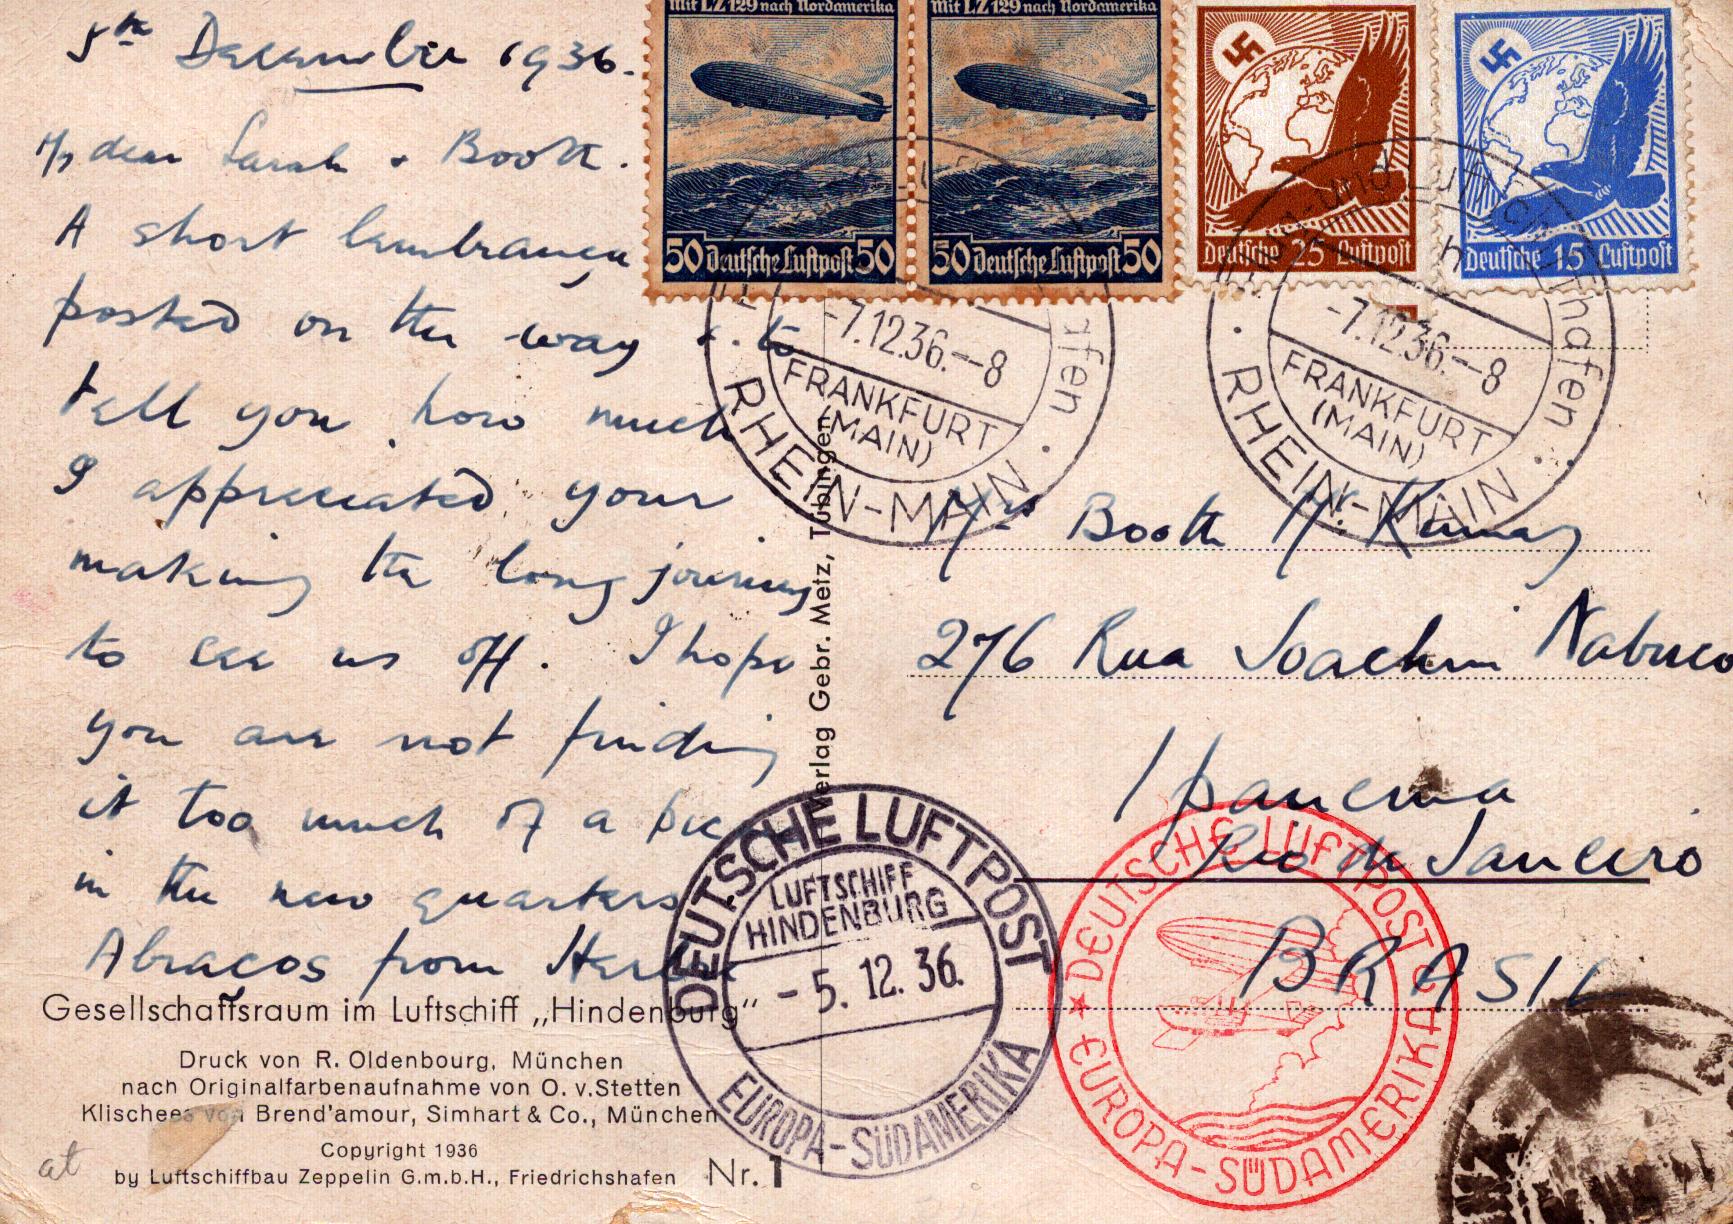 5th December 1936.
My dear Sarah + Booth.
A short lembrança
posted on the way & to
tell you how much
I appreciated your
making the long journey
to see us off. I hope
you are not finding
it too much of a
in the new quarters
Abraços from
Gesellschaftsraum im Luftschiff „Hindenburg“
Druck von R. Oldenbourg, München
nach Originalfarbenaufnahme von O. v. Stetten
Klischees von Brend'amour, Simhart & Co., München
Copyright 1936
by Luftschiffbau Zeppelin G.m.b.H., Friedrichshafen
Nr. 1
at
Verlag Gebr. Metz, Tübingen
Mit LZ 129 nach Nordamerika
50 Deutsche Luftpost 50
Mit LZ 129 nach Nordamerika
50 Deutsche Luftpost 50
Deutsche 25 Luftpost
Deutsche 15 Luftpost
-7.12.36.--8
FRANKFURT
(MAIN)
RHEIN-MAIN
Flug- und Luftschiffhafen
-7.12.36.--8
FRANKFURT
(MAIN)
RHEIN-MAIN
Booth
276 Rua Joachim Nabuco
Ipanema
Rio de Janeiro
BRASIL
DEUTSCHE LUFTPOST
LUFTSCHIFF
HINDENBURG
- 5. 12. 36.
EUROPA-SÜDAMERIKA
DEUTSCHE LUFTPOST
EUROPA-SÜDAMERIKA